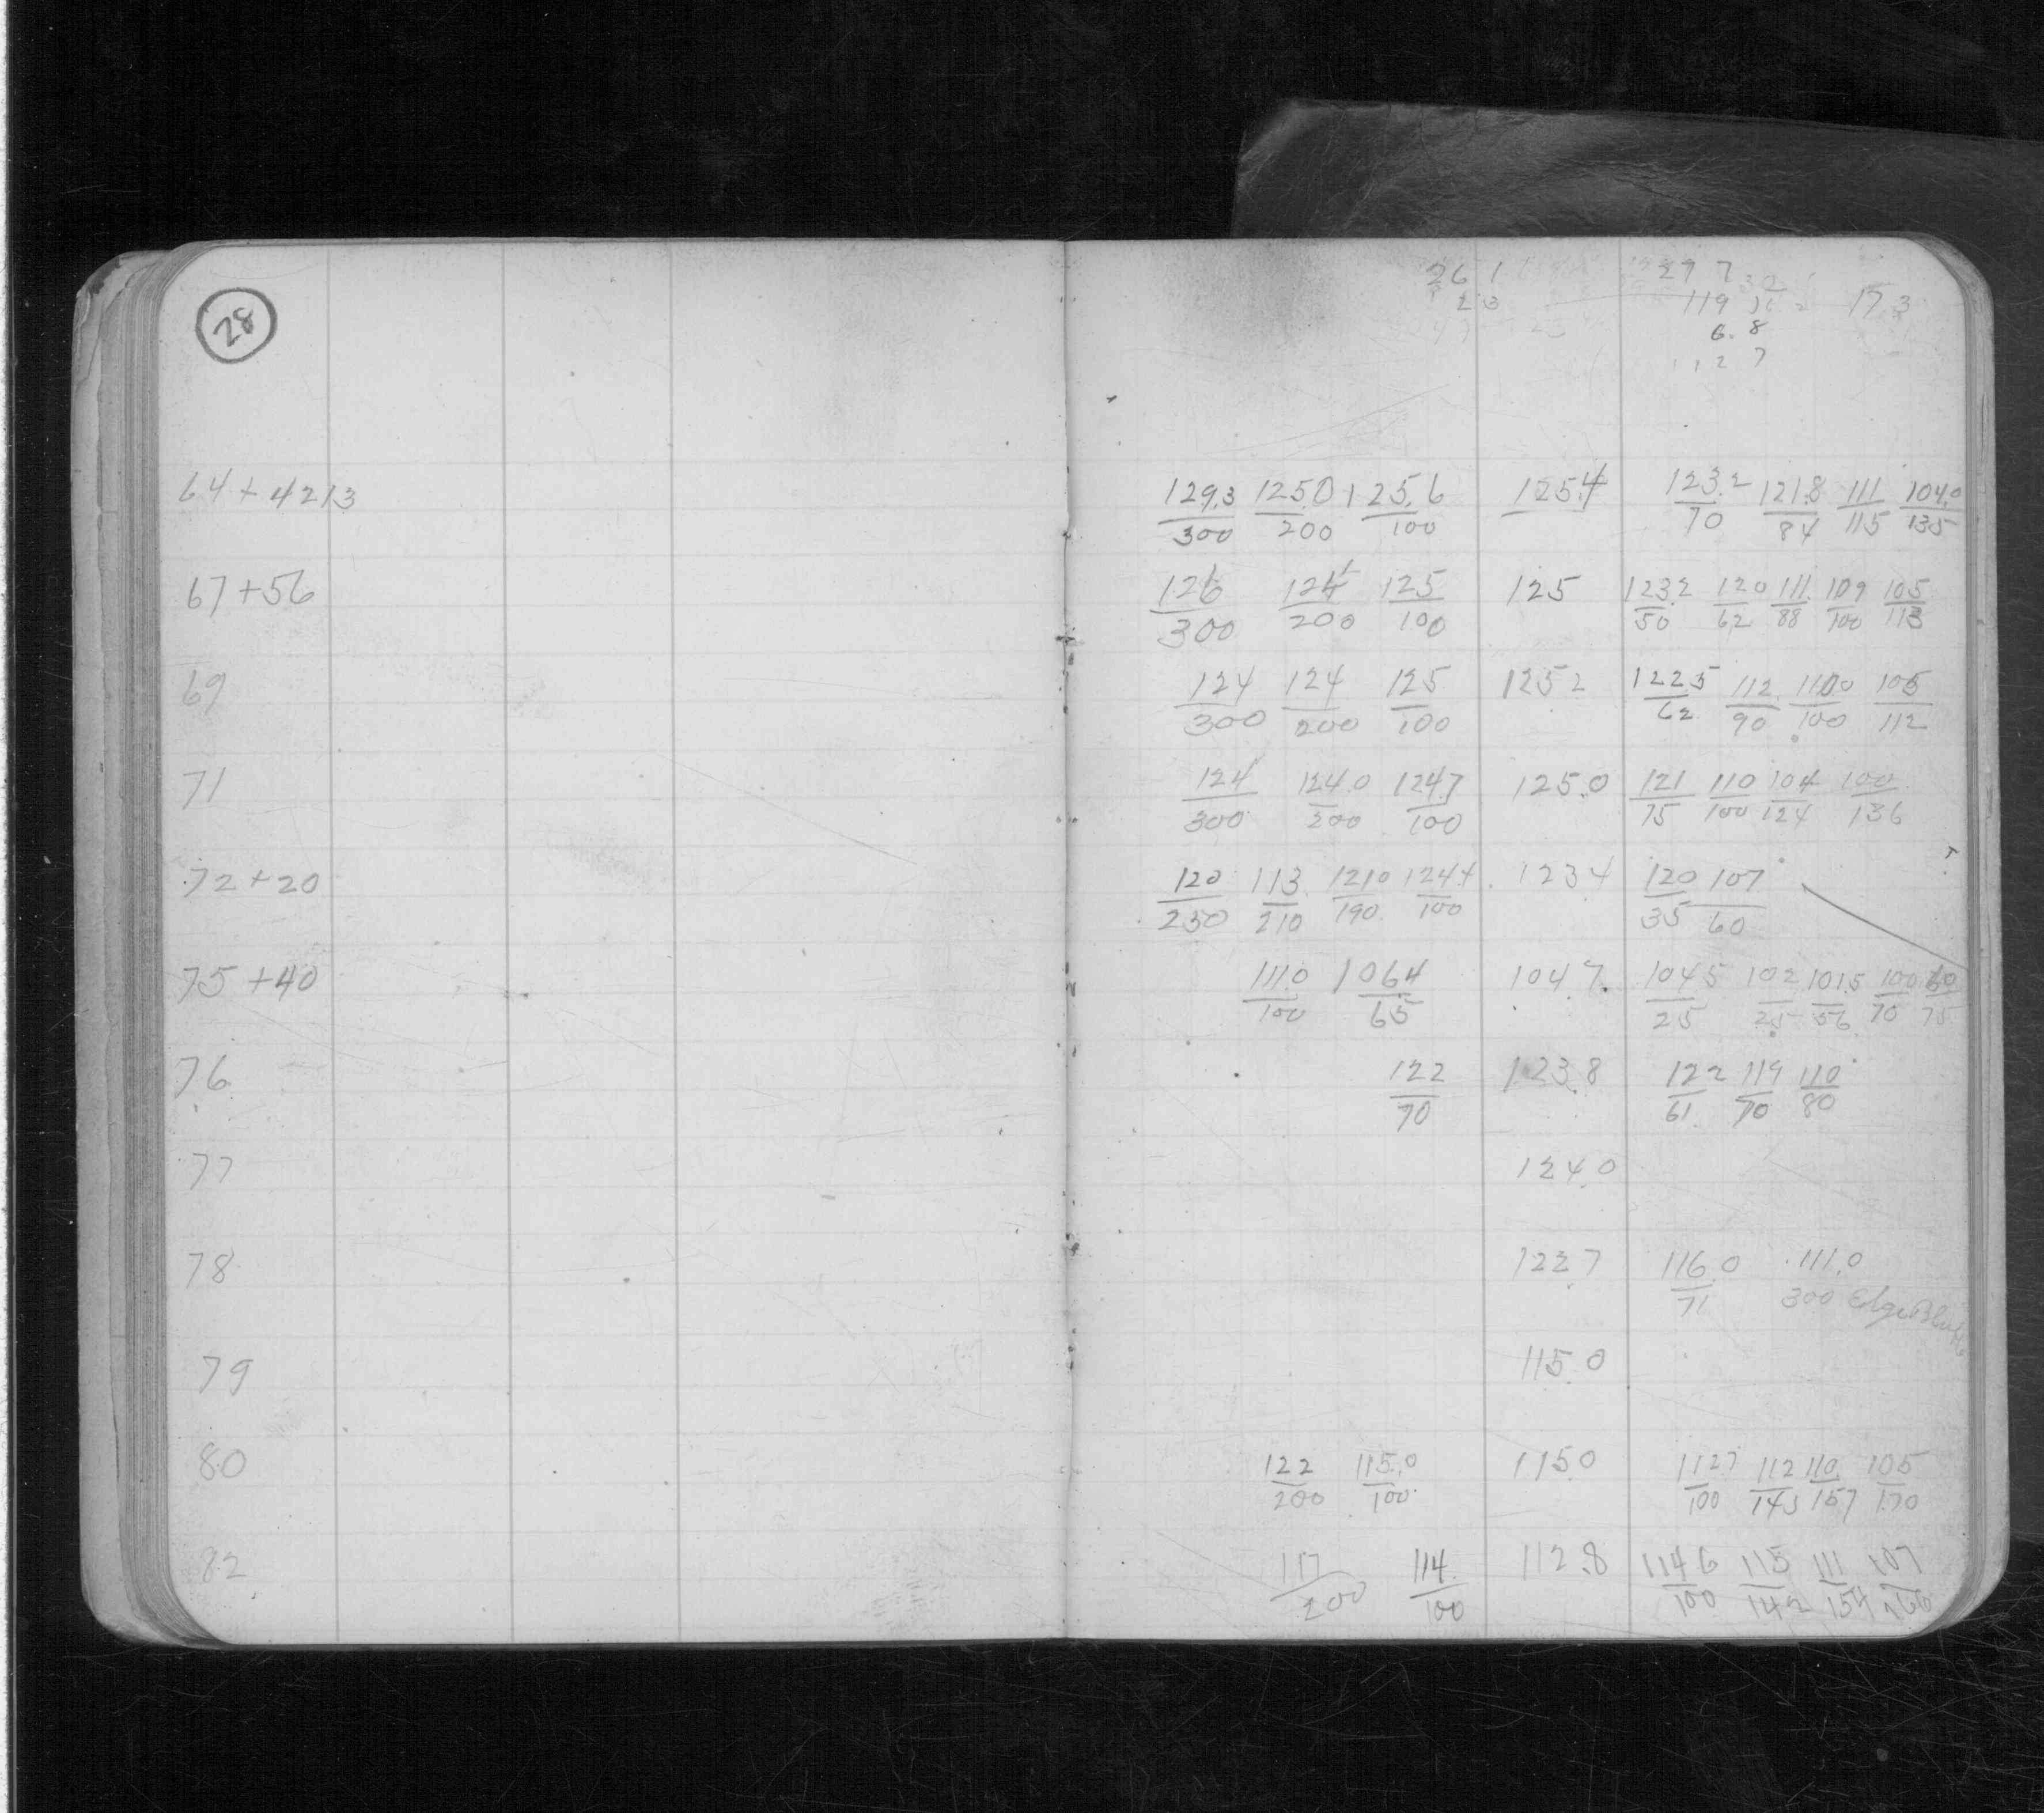 28
26 1 27 7
23 119 17.3
6.8
112 7
64+4213 129.3/300 125.0/200 125.6/100 125.4 123.2/70 121.8/84 111/115 104.0/135
67+56 126/300 124/200 125/100 125 123.2/50 120/62 111/88 109/100 105/113
69 124/300 124/200 125/100 125 2 122 5/62 112/90 110.0/100 105/112
71 124/300 124.0/200 124.7/100 125.0 121/75 110/100 104/124 100/136
72+20 120/230 113/210 121 0/190 124 4/100 123 4 120/35 107/60
75+40 111.0/100 106 4/65 104 7 104 5/25 102/25 101.5/56 100/70 60/75
76 122/70 123.8 122/61 119/70 110/80
77 124.0
78 122 7 116.0/71 111.0/300 Edge Bluff
79 115.0
80 122/200 115.0/100 115.0 112 7/100 112/143 110/157 105/170
82 117/200 114/100 112.8 114 6/100 115/142 111/154 107/166